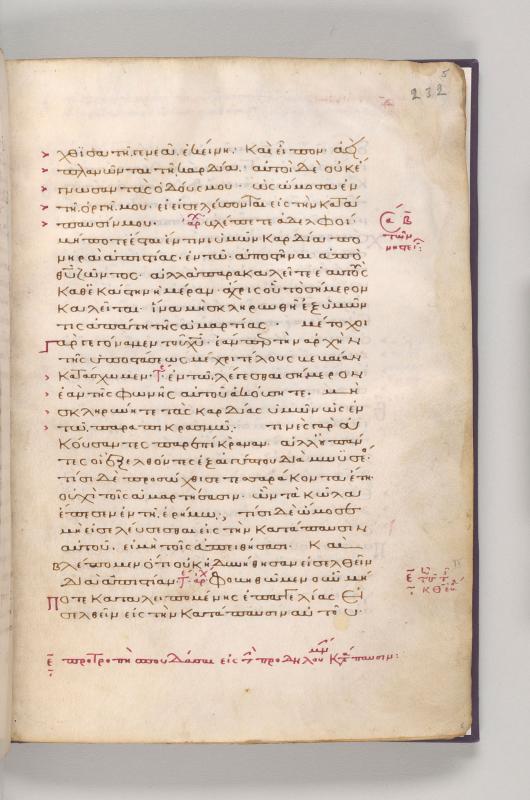 χθισα τῆ γενεᾶ ἐκείνη· Καὶ εἶπον· ἀεὶ
πλανῶνται τῆ καρδία· αὐτοὶ δὲ οὐκ ἔ
γνωσαν τὰς ὁδούς μου· ὡς ὤμοσα ἐν
τῆ ὀργῆ μου· εἰ εἰσελεύσονται εἰς τὴν κατά
παυσίν μου· ἀρχ βλέπετε ἀδελφοὶ
μήποτε ἔσται ἔν τινι ὑμῶν καρδία πο
νηρὰ ἀπιστίας· ἐν τῶ ἀποστῆναι ἀπὸ
θ̅υ̅ ζῶντος· ἀλλὰ παρακαλεῖτε ἑαυτοὺς
καθ' ἑκάστην ἡμέραν· ἄχρις οὗ τὸ σήμερον
καλεῖται· ἵνα μὴ σκληρυνθῆ ἐξ ὑμῶν
τις ἀπάτη τῆς ἁμαρτίας· μέτοχοι
γὰρ γεγόναμεν τοῦ χ̅υ̅· ἐάνπερ τὴν ἀρχὴν
τῆς ὑποστάσεως μέχρι τέλους βεβαίαν
κατάσχωμεν· ἐν τῶ λέγεσθαι σήμερον
ἐὰν τῆς φωνῆς αὐτοῦ ἀκούσητε· μὴ
σκληρύνητε τὰς καρδίας ὑμῶν ὡς ἐν
τῶ παραπικρασμῶ· τινὲς γὰρ ἀ
κούσαντες παρεπίκραναν· ἀλλ' οὐ πάν
τες οἱ ἐξελθόντες ἐξ αἰγύπτου διὰ μωυσέος·
τίσι δὲ προσώχθισε τεσσαράκοντα ἔτη·
οὐχὶ τοῖς ἁμαρτήσασιν· ὧν τὰ κῶλα
ἔπεσεν ἐν τῆ ἐρήμω; τίσι δὲ ὤμοσε
μὴ εἰσελεύσεσθαι εἰς τὴν κατάπαυσιν
αὐτοῦ· εἰ μὴ τοῖς ἀπειθήσασι· Καὶ
βλέπομεν ὅτι οὐκ ἠδυνήθησαν εἰσελθεῖν
δι' ἀπιστίαν· Φοβηθῶμεν οὖν μή
ποτε καταλειπομένης ἐπαγγελίας εἰ
σελθεῖν εἰς τὴν κατάπαυσιν αὐτοῦ·
ε̅ προτροπὴ σπουδάσαι εἰς τὴν προδηλου κατάπαυσιν:
232
5